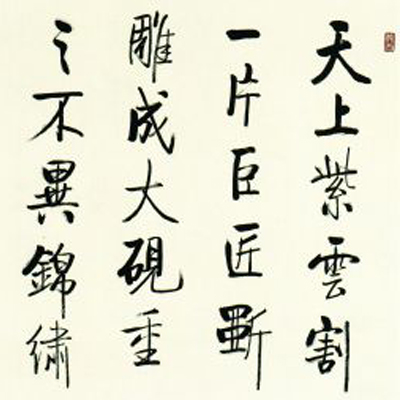 天上紫雲割
一片巨匠斲
雕成大硯重
之不異錦繡